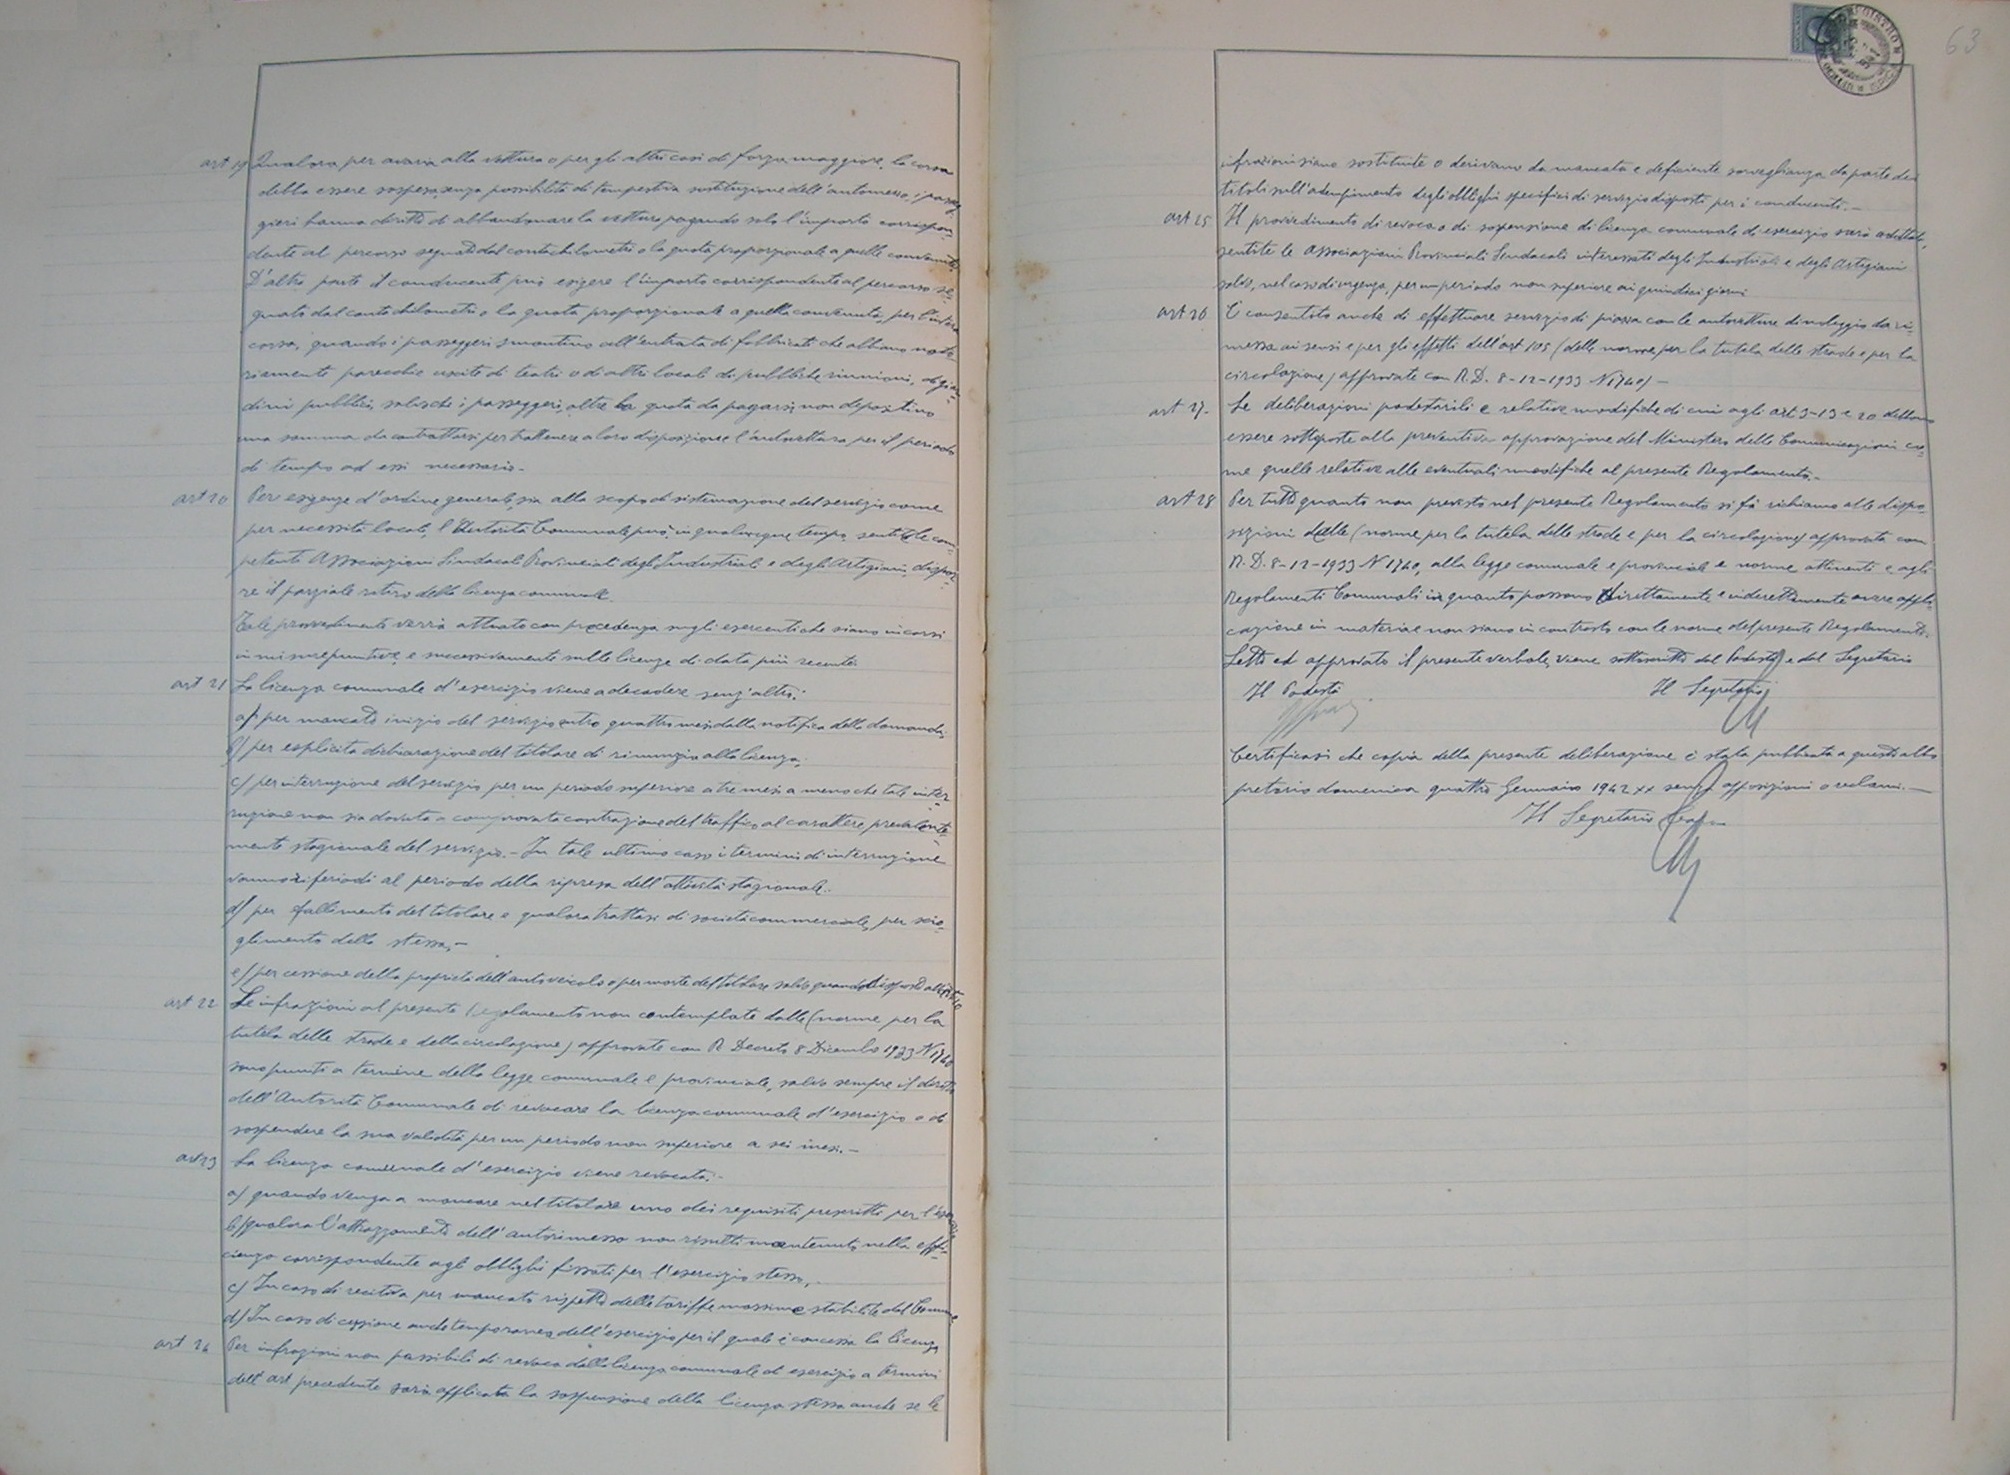 art 19 Qualora per avaria alla vettura o per gli altri casi di forza maggiore la corsa
debba essere sospesa, senza possibilità di tempestiva sostituzione dell'automezzo, i passeg=
gieri hanno diritto di abbandonare la vettura pagando solo l'importo corrispon=
dente al percorso segnato dal contachilometri o la quota proporzionale a quella convenuta.
D'altra parte il conducente può esigere l'importo corrispondente al percorso se=
gnato dal contachilometri o la quota proporzionale a quella convenuta, per l'intera
corsa, quando i passeggeri smontino all'entrata di fabbricati che abbiano noto
riamente parecchie uscite di teatri o di altri locali di pubbliche riunioni, o di giar=
dini pubblici, salvo che i passeggeri, oltre la quota da pagarsi, non depositino
una somma da contrattarsi per trattenere a loro disposizione l'autovettura per il periodo
di tempo ad essi necessario.-
art 20 Per esigenze d'ordine generale, sia allo scopo di sistemazione del servizio come
per necessità locali, l'Autorità Comunale può, in qualunque tempo, sentite le com=
petenti Associazioni Sindacali Provinciali degli Industriali e degli Artigiani, dispor=
re il parziale ritiro della licenza comunale.
Tale provvedimento verrà attuato con precedenza sugli esercenti che siano incorsi
in misure punitive e successivamente sulle licenze di data più recente.
art 21 La licenza comunale d'esercizio viene a decadere senz'altro:
a) per mancato inizio del servizio entro quattro mesi dalla notifica della domanda,
b) per esplicita dichiarazione del titolare di rinunzia alla licenza;
c) per interruzione del servizio per un periodo superiore a tre mesi a meno che tale inter=
ruzione non sia dovuta a comprovata contrazione del traffico, al carattere prevalente=
mente stagionale del servizio.- In tale ultimo caso i termini di interruzione
vanno riferiti al periodo della ripresa dell'attività stagionale.-
d) per fallimento del titolare e qualora trattasi di società commerciale, per scio=
glimento della stessa,-
e) per cessione della proprietà dell'autoveicolo o per morte del titolare salvo quando disposto all'art
art 22 Le infrazioni al presente Regolamento non contemplate dalle (norme per la
tutela delle strade e della circolazione) approvate con R. Decreto 8 Dicembre 1933 N 1740
sono punite a termine della legge comunale e provinciale, salvo sempre il diritto
dell'Autorità Comunale di revocare la licenza comunale d'esercizio o di
sospendere la sua validità per un periodo non superiore a sei mesi.-
art 23 La licenza comunale d'esercizio viene revocata:-
a) quando venga a mancare nel titolare uno dei requisiti prescritti per l'esercizio
b) qualora l'attrezzamento dell'autorimessa non risulti mantenuto nella effi=
cienza corrispondente agli obblighi fissati per l'esercizio stesso,-
c) In caso di recidiva per mancato rispetto delle tariffe massime stabilite dal Comune
d) In caso di cessione anche temporanea dell'esercizio per il quale è concessa la licenza
art 24 Per infrazioni non passibili di revoca della licenza comunale d'esercizio a termini
dell'art precedente sarà applicata la sospensione della licenza stessa anche se le
63
infrazioni siano sostituite o derivano da mancata e deficiente sorveglianza da parte dei
titoli sull'adempimento degli obblighi specifici di servizio disposti per i conducenti.-
art 25 Il provvedimento di revoca o di sospensione di licenza comunale di esercizio sarà adottato,
sentite le Associazioni Provinciali Sindacali interessate degli Industriali e degli Artigiani
salvo, nel caso di urgenza, per un periodo non superiore ai quindici giorni
art 26 È consentito anche di effettuare servizio di piazza con le autovetture di noleggio da ri=
messa ai sensi e per gli effetti dell'art 105 (delle norme per la tutela delle strade e per la
circolazione) approvate con R.D. 8-12-1933 N 1740) -
art 27.- Le deliberazioni podestarili e relative modifiche di cui agli art 3-13 e 20 debbono
essere sottoposte alla preventiva approvazione del Ministero delle Comunicazioni co=
me quelle relative alle eventuali modifiche al presente Regolamento.-
art 28 Per tutto quanto non previsto nel presente Regolamento si fà richiamo alle dispo=
sizioni delle (norme per la tutela delle strade e per la circolazione) approvata con
R.D. 8-12-1933 N 1740, alla legge comunale e provinciale e norme attinenti e agli
Regolamenti Comunali in quanto possono direttamente e indirettamente avere appli=
cazione in materia e non siano in contrasto con le norme del presente Regolamento.-
Letto ed approvato il presente verbale, viene sottoscritto dal Podestà e dal Segretario
Il Podestà Il Segretario
Certificasi che copia della presente deliberazione è stata pubblicata a questo albo
pretorio domenica quattro Gennaio 1942 XX senza opposizioni o reclami.-
Il Segretario